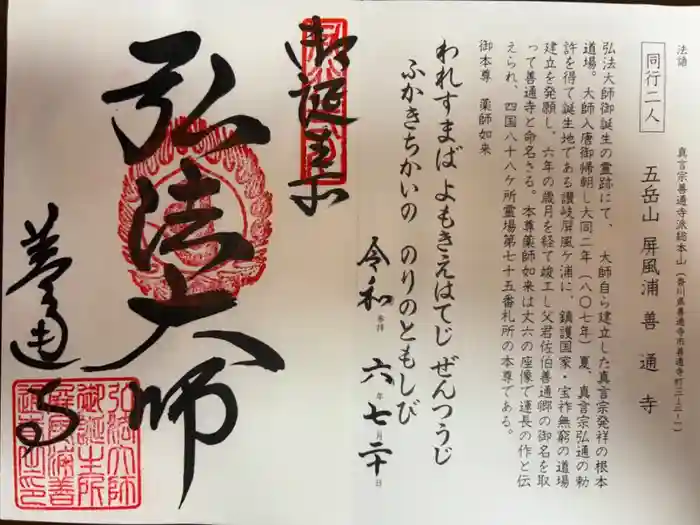 法語
真言宗善通寺派総本山(香川県善通寺市善通寺町三-三-一)
同行二人
五岳山 屏風浦 善通寺
弘法大師御誕生の霊跡にて、 大師自ら建立した真言宗発祥の根本
道場。大師入唐御帰朝し大同二年(八〇七年)夏、真言宗弘通の勅
許を得て誕生地である讃岐屏風ヶ浦に、鎮護国家・宝祚無窮の道場
建立を発願し、六年の歳月を経て竣工し父君佐伯善通卿の御名を取
って善通寺と命名さる。本尊薬師如来は丈六の座像で運長の作と伝
えられ、四国八十八ケ所霊場第七十五番札所の本尊である。
御本尊 薬師如来
われすまば よもきえはてじ ぜんつうじ
ふかきちかいの のりのともしび
令和 奉拝 六年 七月 二十日
御誕生所
弘法大師
善通寺
弘法大師
御誕生所
屏風浦善
通寺之印